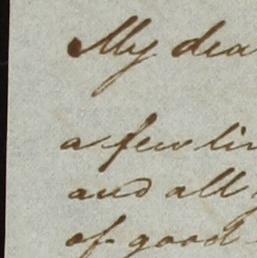 My dea
a few lin
and all
of good